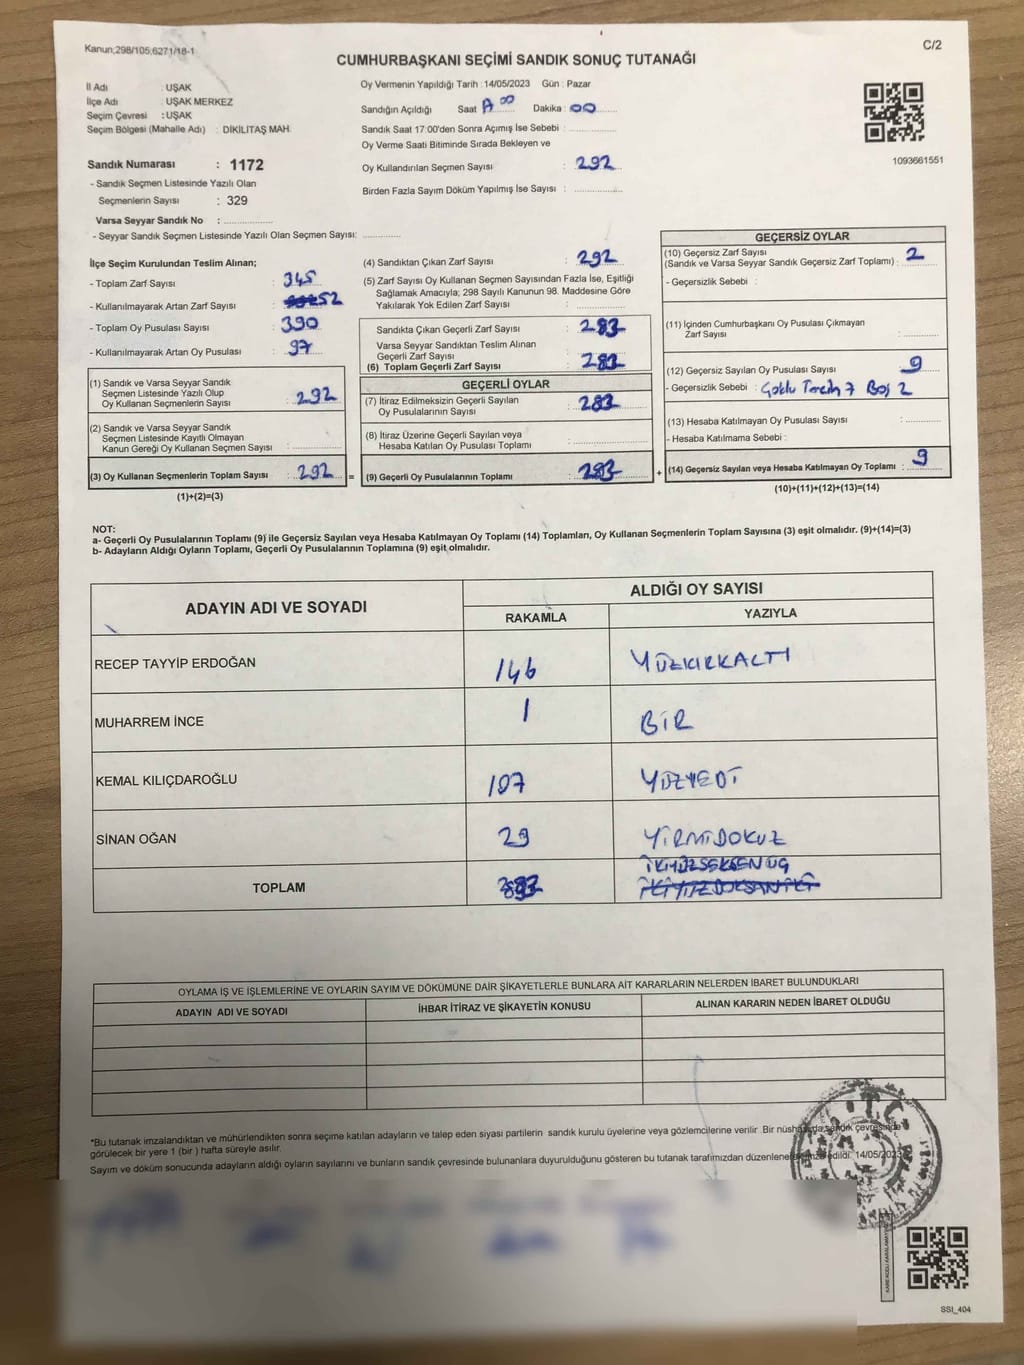 Kanun;298/105;6271/18-1
C/2
CUMHURBAŞKANI SEÇİMİ SANDIK SONUÇ TUTANAĞI
İl Adı : UŞAK
İlçe Adı : UŞAK MERKEZ
Seçim Çevresi : UŞAK
Seçim Bölgesi (Mahalle Adı) : DİKİLİTAŞ MAH.
Oy Vermenin Yapıldığı Tarih : 14/05/2023 Gün : Pazar
Sandığın Açıldığı Saat Dakika : 00
Sandık Saat 17:00'den Sonra Açımış İse Sebebi :
Oy Verme Saati Bitiminde Sırada Bekleyen ve
Oy Kullandırılan Seçmen Sayısı : 292
Birden Fazla Sayım Döküm Yapılmış İse Sayısı :
1093661551
Sandık Numarası : 1172
- Sandık Seçmen Listesinde Yazılı Olan
Seçmenlerin Sayısı : 329
Varsa Seyyar Sandık No :
- Seyyar Sandık Seçmen Listesinde Yazılı Olan Seçmen Sayısı:
İlçe Seçim Kurulundan Teslim Alınan;
- Toplam Zarf Sayısı : 345
- Kullanılmayarak Artan Zarf Sayısı : 52
- Toplam Oy Pusulası Sayısı : 390
- Kullanılmayarak Artan Oy Pusulası : 97
(1) Sandık ve Varsa Seyyar Sandık
Seçmen Listesinde Yazılı Olup
Oy Kullanan Seçmenlerin Sayısı : 292
(2) Sandık ve Varsa Seyyar Sandık
Seçmen Listesinde Kayıtlı Olmayan
Kanun Gereği Oy Kullanan Seçmen Sayısı :
(3) Oy Kullanan Seçmenlerin Toplam Sayısı : 292 =
(1)+(2)=(3)
(4) Sandıktan Çıkan Zarf Sayısı : 292
(5) Zarf Sayısı Oy Kullanan Seçmen Sayısından Fazla İse, Eşitliği
Sağlamak Amacıyla; 298 Sayılı Kanunun 98. Maddesine Göre
Yakılarak Yok Edilen Zarf Sayısı :
Sandıkta Çıkan Geçerli Zarf Sayısı : 283
Varsa Seyyar Sandıktan Teslim Alınan
Geçerli Zarf Sayısı
(6) Toplam Geçerli Zarf Sayısı : 283
GEÇERLİ OYLAR
(7) İtiraz Edilmeksizin Geçerli Sayılan
Oy Pusulalarının Sayısı : 283
(8) İtiraz Üzerine Geçerli Sayılan veya
Hesaba Katılan Oy Pusulası Toplamı :
(9) Geçerli Oy Pusulalarının Toplamı : 283 +
GEÇERSİZ OYLAR
(10) Geçersiz Zarf Sayısı
(Sandık ve Varsa Seyyar Sandık Geçersiz Zarf Toplamı) : 2
- Geçersizlik Sebebi :
(11) İçinden Cumhurbaşkanı Oy Pusulası Çıkmayan
Zarf Sayısı :
(12) Geçersiz Sayılan Oy Pusulası Sayısı : 9
- Geçersizlik Sebebi : Çoklu Tercih 7 Boş 2
(13) Hesaba Katılmayan Oy Pusulası Sayısı :
- Hesaba Katılmama Sebebi :
(14) Geçersiz Sayılan veya Hesaba Katılmayan Oy Toplamı : 9
(10)+(11)+(12)+(13)=(14)
NOT:
a- Geçerli Oy Pusulalarının Toplamı (9) ile Geçersiz Sayılan veya Hesaba Katılmayan Oy Toplamı (14) Toplamları, Oy Kullanan Seçmenlerin Toplam Sayısına (3) eşit olmalıdır. (9)+(14)=(3)
b- Adayların Aldığı Oyların Toplamı, Geçerli Oy Pusulalarının Toplamına (9) eşit olmalıdır.
ADAYIN ADI VE SOYADI
ALDIĞI OY SAYISI
RAKAMLA YAZIYLA
RECEP TAYYİP ERDOĞAN 146 YÜZKIRKALTI
MUHARREM İNCE 1 BİR
KEMAL KILIÇDAROĞLU 107 YÜZYEDİ
SİNAN OĞAN 29 YİRMİDOKUZ
İKİYÜZSEKSENÜÇ
TOPLAM 283 İKİYÜZDOKSANİKİ
OYLAMA İŞ VE İŞLEMLERİNE VE OYLARIN SAYIM VE DÖKÜMÜNE DAİR ŞİKAYETLERLE BUNLARA AİT KARARLARIN NELERDEN İBARET BULUNDUKLARI
ADAYIN ADI VE SOYADI İHBAR İTİRAZ VE ŞİKAYETİN KONUSU ALINAN KARARIN NEDEN İBARET OLDUĞU
*Bu tutanak imzalandıktan ve mühürlendikten sonra seçime katılan adayların ve talep eden siyasi partilerin sandık kurulu üyelerine veya gözlemcilerine verilir .Bir nüshası da sandık çevresinde
görülecek bir yere 1 (bir ) hafta süreyle asılır.
Sayım ve döküm sonucunda adayların aldığı oyların sayılarını ve bunların sandık çevresinde bulunanlara duyurulduğunu gösteren bu tutanak tarafımızdan düzenlenerek imza edildi. 14/05/2023
T.C.
SSI_404